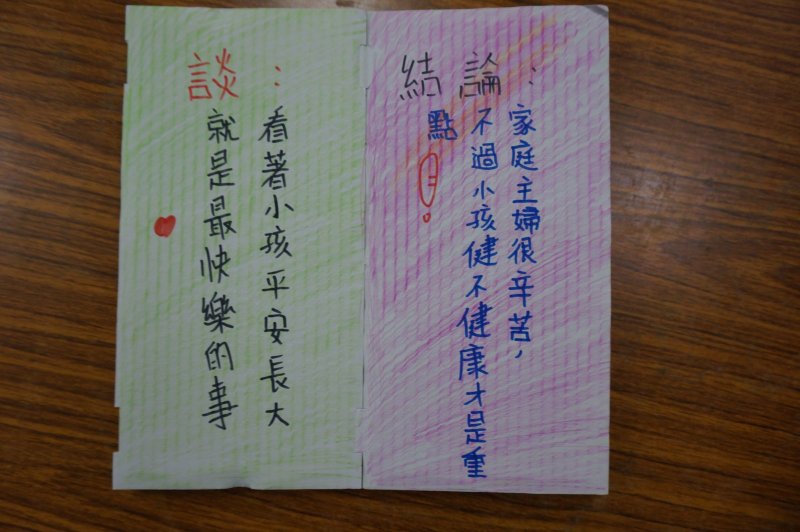 結論:
家庭主婦很辛苦,
不過小孩健不健康才是重
點!
談:
看著小孩平安長大
就是最快樂的事